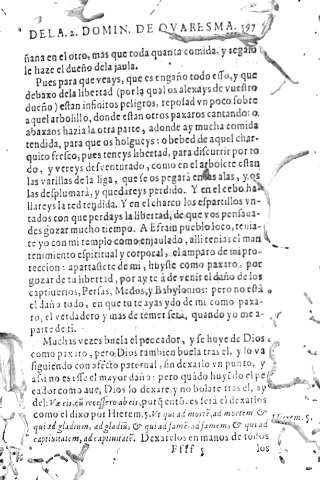 DE LA. 2. DOMIN. DE QVARESMA. 397
ñana en el otro, mas que toda quanta comida, y regalo
le haze el dueño dela jaula.
Pues para que veays, que es engaño todo esso, y que
debaxo dela libertad (por la qual os alexays de vuestro
dueño) estan infinitos peligros, reposad vn poco sobre
aquel arbolillo, donde estan otros paxaros cantando: o
abaxaos hazia la otra parte, adonde ay mucha comida
tendida, para que os holgueys: o bebed de aquel char-
quito fresco, pues teneys libertad, para discurrir por to
do, y vereys desventurado, como en el arbolete estan
las varillas de la liga, que se os pegarà en las alas, y os
las desplumarà, y quedareys perdido. Y en el cebo ha-
llareys la red tendida. Y en el charco los espartillos vn-
tados con que perdays la libertad, de que vos pensaua-
des gozar mucho tiempo. A Efrain pueblo loco, tenia-
te yo con mi templo como enjaulado, alli tenias el man
tenimiento espiritual y corporal, el amparo de mi pro-
teccion: apartaste de mi, huyste como paxaro, por
gozar de tu libertad, por ay te à de venir el daño de los
captiuerios, Persas, Medos, y Babylonios: pero no està
el daño todo, en que tu te ayas ydo de mi como paxa-
ro, el verdadero y mas de temer serà, quando yo me a-
parte de ti.
Muchas vezes buela el peccador, y se huye de Dios
como paxaro, pero Dios tambien buela tras el, y lo va
siguiendo con afecto paternal, sin dexarlo vn punto, y
assi no es esse el mayor daño: pero quãdo huyẽdo el pe
cador como aue, Dios lo dexare, y no bolare tras el, ay
del: Væ eis, cũ recessero ab eis, porq̃ entõ. es serà el dexarlos
como el dixo por Hierem. 5. Ve qui ad mortẽ, ad mortem &
qui ad gladium, ad gladiũ, & qui ad famẽ ad famem, & qui ad
captiuitatem, ad captiuitatẽ. Dexarelos en manos de todos
Hierem. 5.
Ffff 5
los